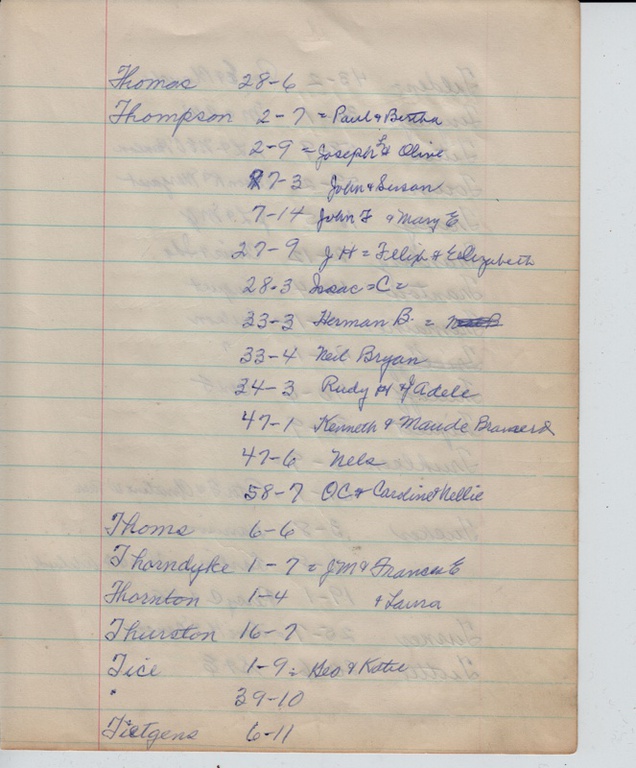 Thomas 28-6
Thompson 2-7 = Paul & Bertha
2-9 = Joseph L & Olive
7-3 John & Susan
7-14 John F & Mary E
27-9 J H = Felix & Elizabeth
28-3 Isaac = C =
33-3 Herman B. =
33-4 Neil Bryan
34-3 Rudy H & Adele
47-1 Kenneth & Maude
47-6 Nels
58-7 OC & Caroline & Nellie
Thoms 6-6
Thorndyke 1-7 = JM & Frances E
Thornton 1-4 & Laura
Thurston 16-7
Tice 1-9 = Geo & Katie
" 39-10
Tietgens 6-11